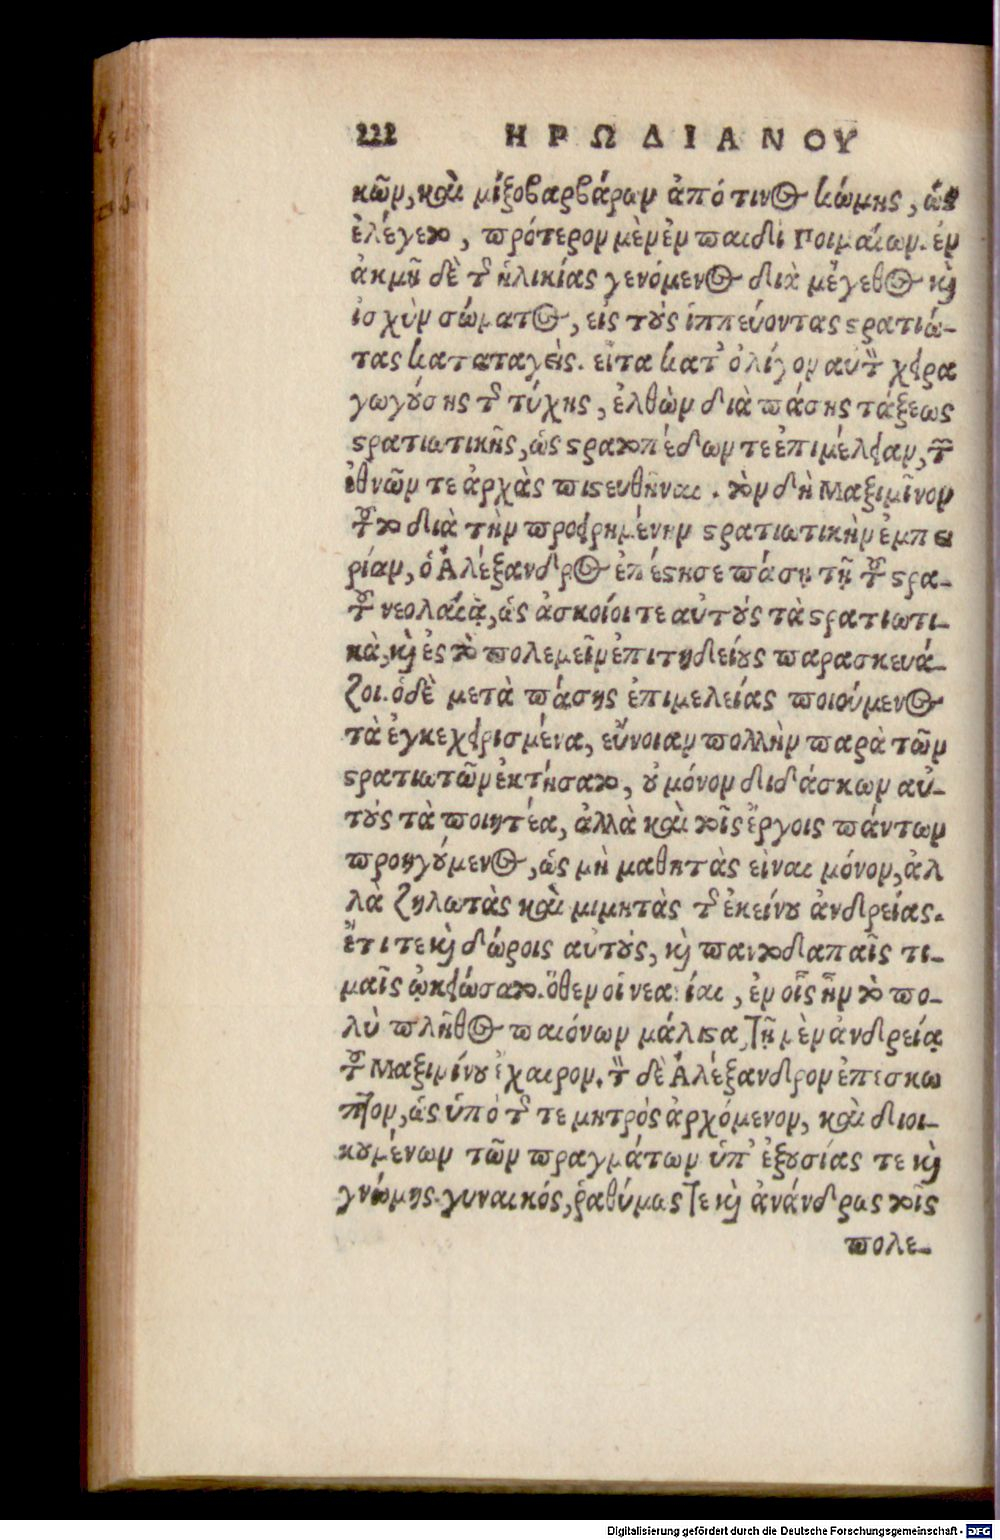 222 ΗΡΩΔΙΑΝΟΥ
κῶν, καὶ μιξοβαρβάρων ἀπό τινος κώμης, ὡς
ἐλέγετο, πρότερον μὲν ἐν παιδὶ ποιμαίων. ἐν
ἀκμῇ δὲ τῆς ἡλικίας γενόμενος διὰ μέγεθος καὶ
ἰσχὺν σώματος, εἰς τοὺς ἱππεύοντας στρατιώ-
τας καταταγεὶς. εἶτα κατ᾽ ὀλίγον αὐτὸν χειρα
γωγούσης τῆς τύχης, ἐλθὼν διὰ πάσης τάξεως
στρατιωτικῆς, ὡς στρατοπέδων τε ἐπιμέλειαν, τῶν
ἐθνῶν τε ἀρχὰς πιστευθῆναι. τὸν δὴ Μαξιμῖνον
τοῦτο διὰ τὴν προειρημένην στρατιωτικὴν ἐμπει
ρίαν, ὁ Ἀλέξανδρος ἐπέστησε πάσῃ τῇ τοῦ στρα-
τοῦ νεολαίᾳ, ὡς ἀσκοίοι τε αὐτοὺς τὰ στρατιωτι-
κὰ, καὶ ἐς τὸ πολεμεῖν ἐπιτηδείους παρασκευά-
ζοι. ὁ δὲ μετὰ πάσης ἐπιμελείας ποιούμενος
τὰ ἐγκεχειρισμένα, εὔνοιαν πολλὴν παρὰ τῶν
στρατιωτῶν ἐκτήσατο, οὐ μόνον διδάσκων αὐ-
τοὺς τὰ ποιητέα, ἀλλὰ καὶ τοῖς ἔργοις πάντων
προηγούμενος, ὡς μὴ μαθητὰς εἶναι μόνον, ἀλ
λὰ ζηλωτὰς καὶ μιμητὰς τῆς ἐκείνου ἀνδρείας.
ἔτι τε καὶ δώροις αὐτοὺς, καὶ παντοδαπαῖς τι-
μαῖς ᾠκειώσατο. ὅθεν οἱ νεανίαι, ἐν οἷς ἦν τὸ πο-
λὺ πλῆθος παιόνων μάλιστα, τῇ μὲν ἀνδρείᾳ
τοῦ Μαξιμίνου ἔχαιρον. τὸν δὲ Ἀλέξανδρον ἐπεσκω
πτον, ὡς ὑπό τῆς τε μητρός ἀρχόμενον, καὶ διοι-
κουμένων τῶν πραγμάτων ὑπ᾽ ἐξουσίας τε καὶ
γνώμης γυναικός, ῥαθύμως τε καὶ ἀνάνδρως τοῖς
πολε-
Digitalisierung gefördert durch die Deutsche Forschungsgemeinschaft - DFG